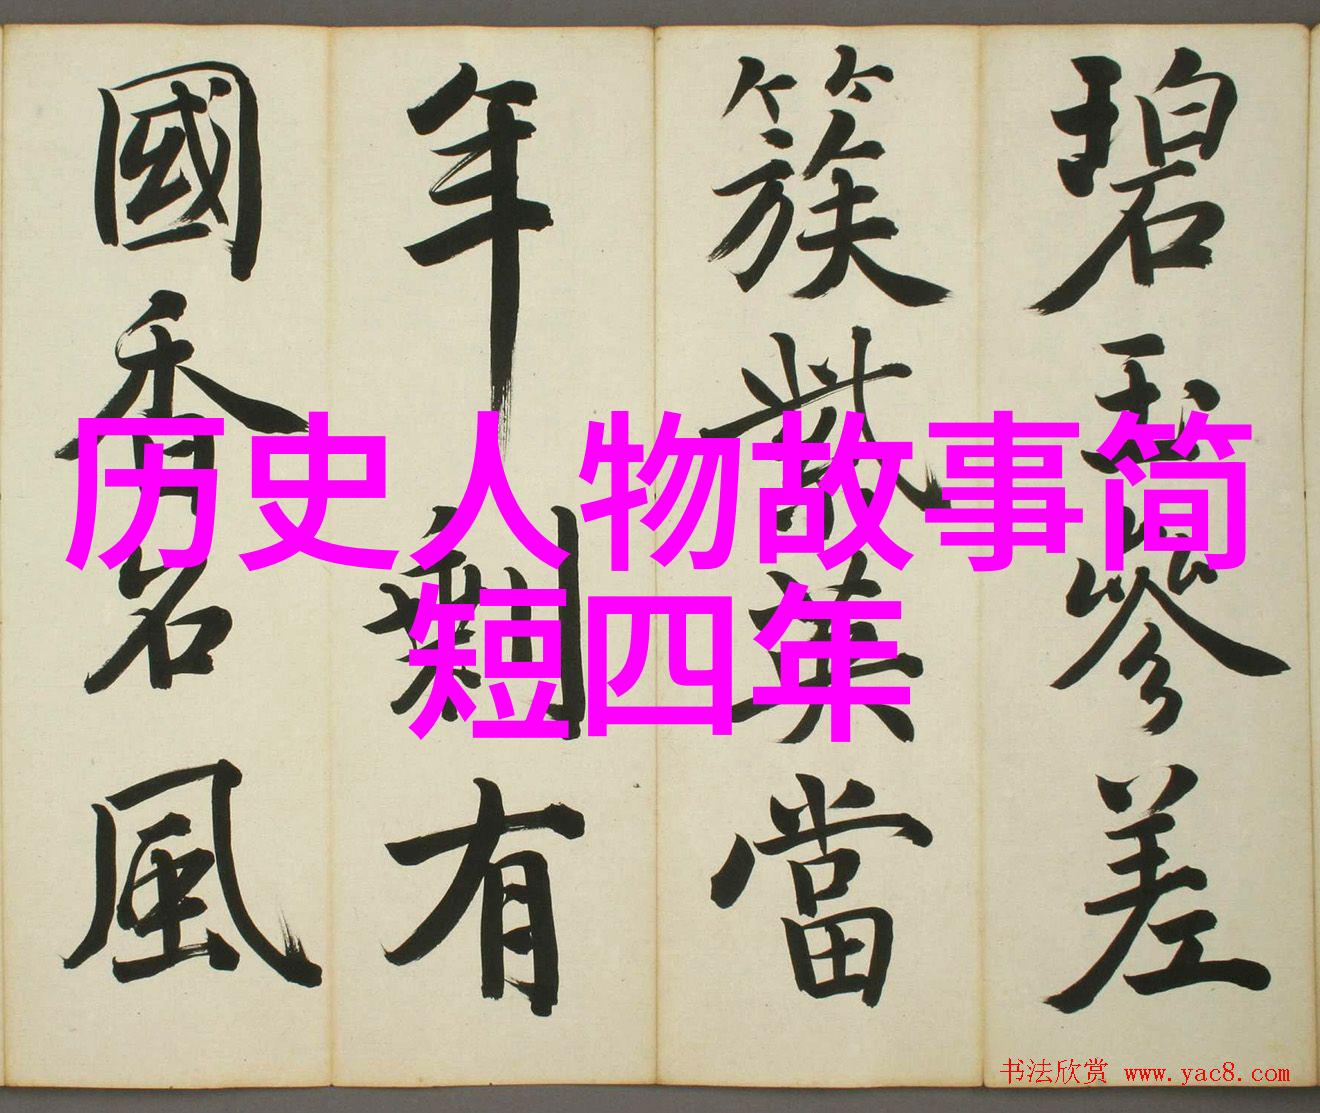 碧玉參差
簇紫英當
年剩有
國香名風
历史人物故事简
短四年
书法欣赏 www.yac8.com